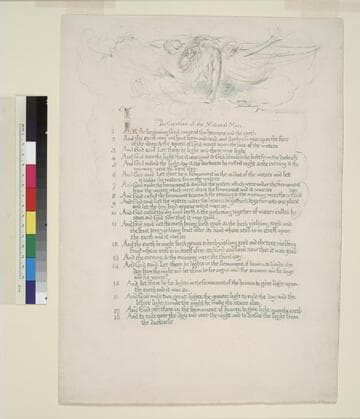 The Creation of the Natural Man
1 In the beginning God created the heavens and the earth
2 And the earth was without form and void, and darkness was upon the face
of the deep & the Spirit of God moved upon the face of the waters
3 And God said Let there be light and there was light
4 And God saw the light that it was good & God divided the light from the darkness
5 And God called the light day & the darkness he called night & the evening & the
morning were the first day
6 And God said Let there be a firmament in the midst of the waters and let
it divide the waters from the waters
7 And God made the firmament & divided the waters which were under the firmament
from the waters which were above the firmament and it was so
8 And God called the firmament heaven & the evening & the morning were the second day
9 And God said Let the waters under the heaven be gathered together unto one place
and let the dry land appear and it was so
10 And God called the dry land earth & the gathering together of waters called he
seas and God saw that it was good
11 And God said Let the earth bring forth grass the herb yielding seed and
the fruit tree yielding fruit after its kind whose seed is in itself upon
the earth and it was so
12 And the earth brought forth grass & herb yielding seed and the tree yielding
fruit whose seed is in itself after his kind and God saw that it was good
13 And the evening & the morning were the third day
14 And God said Let there be lights in the firmament of heaven to divide the
day from the night and let them be for signs and for seasons and for days
and for years
15 And let them be for lights in the firmament of the heaven to give light upon
the earth and it was so
16 And God made two great lights the greater light to rule the day and the
lesser light to rule the night he made the stars also
17 And God set them in the firmament of heaven to give light upon the earth
18 And to rule over the day and over the night and to divide the light from
the darkness